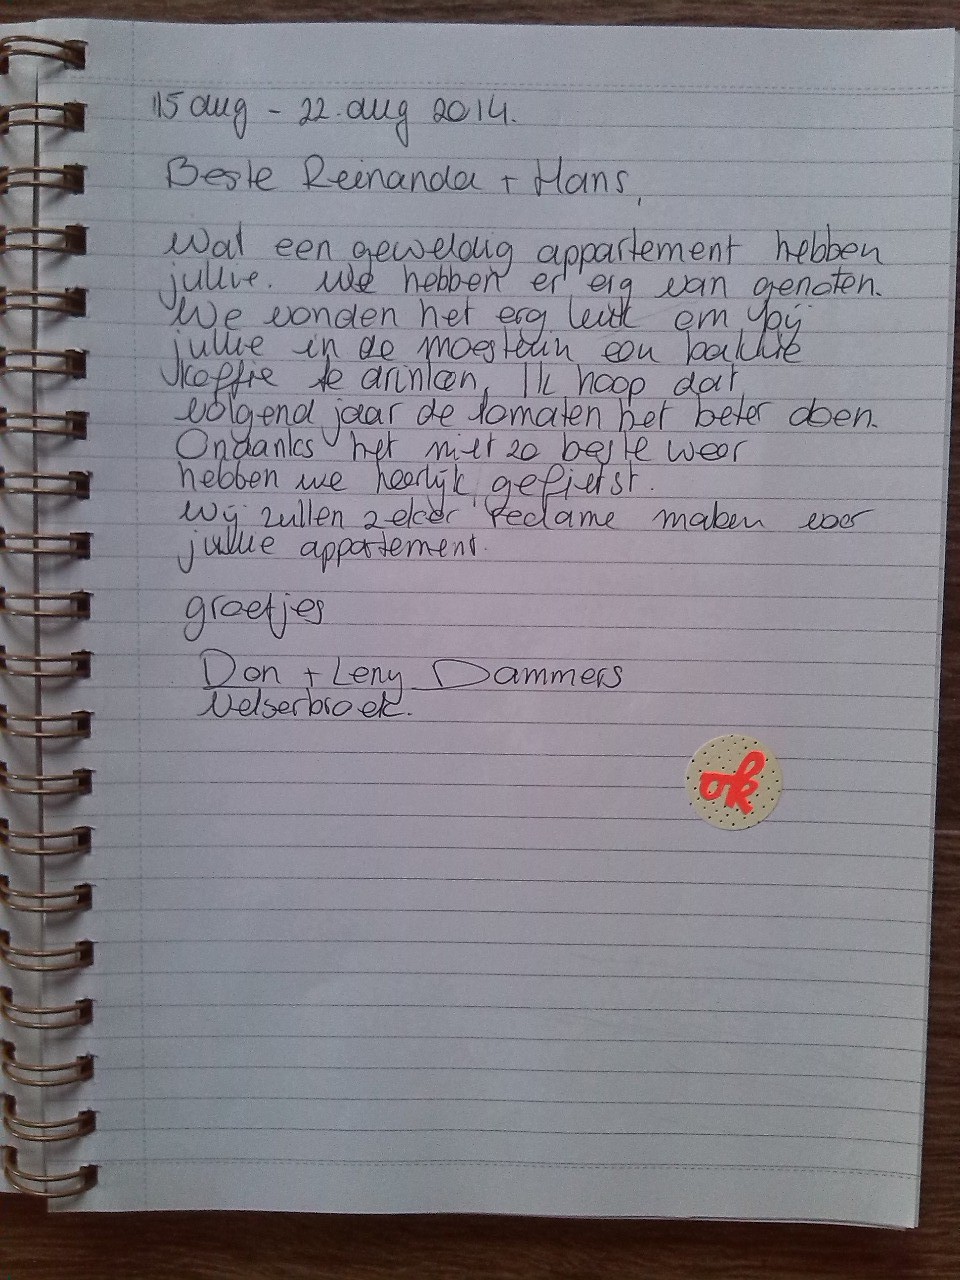 15 aug - 22 aug 2014.
Beste Reinanda + Hans,
Wat een geweldig appartement hebben
jullie. We hebben er erg van genoten.
We vonden het erg leuk om bij
jullie in de moestuin een bakkie
koffie te drinken. Ik hoop dat
volgend jaar de tomaten het beter doen.
Ondanks het niet zo beste weer
hebben we heerlijk gefietst.
Wij zullen zeker reclame maken voor
jullie appartement.
groetjes
Don + Leny Dammers
Velserbroek.
ok